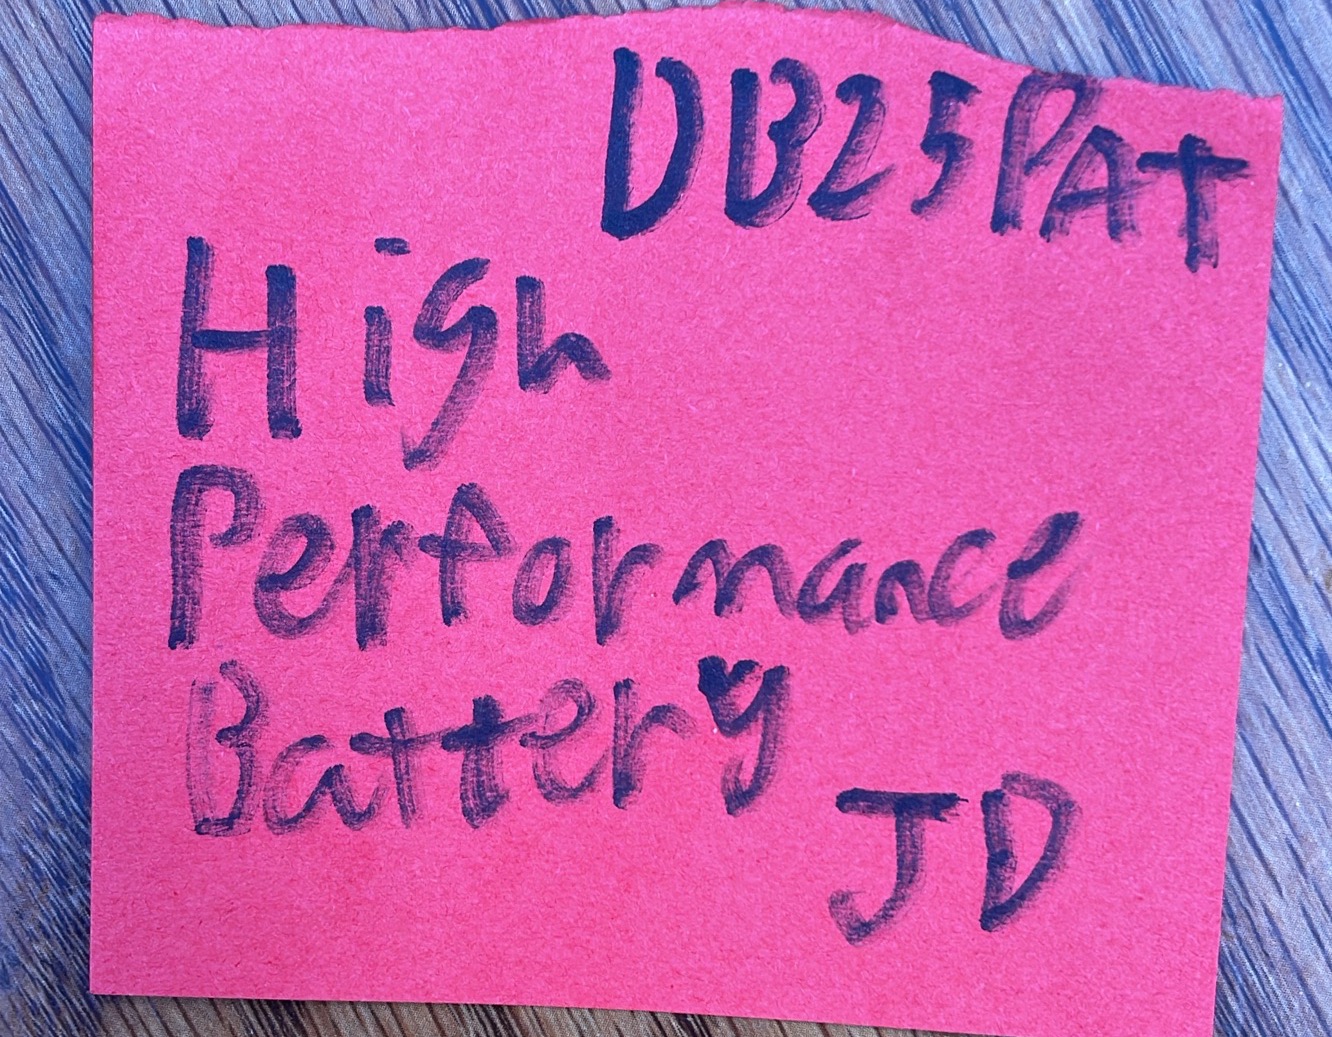 DB25PAT
High
Performance
Battery
JD